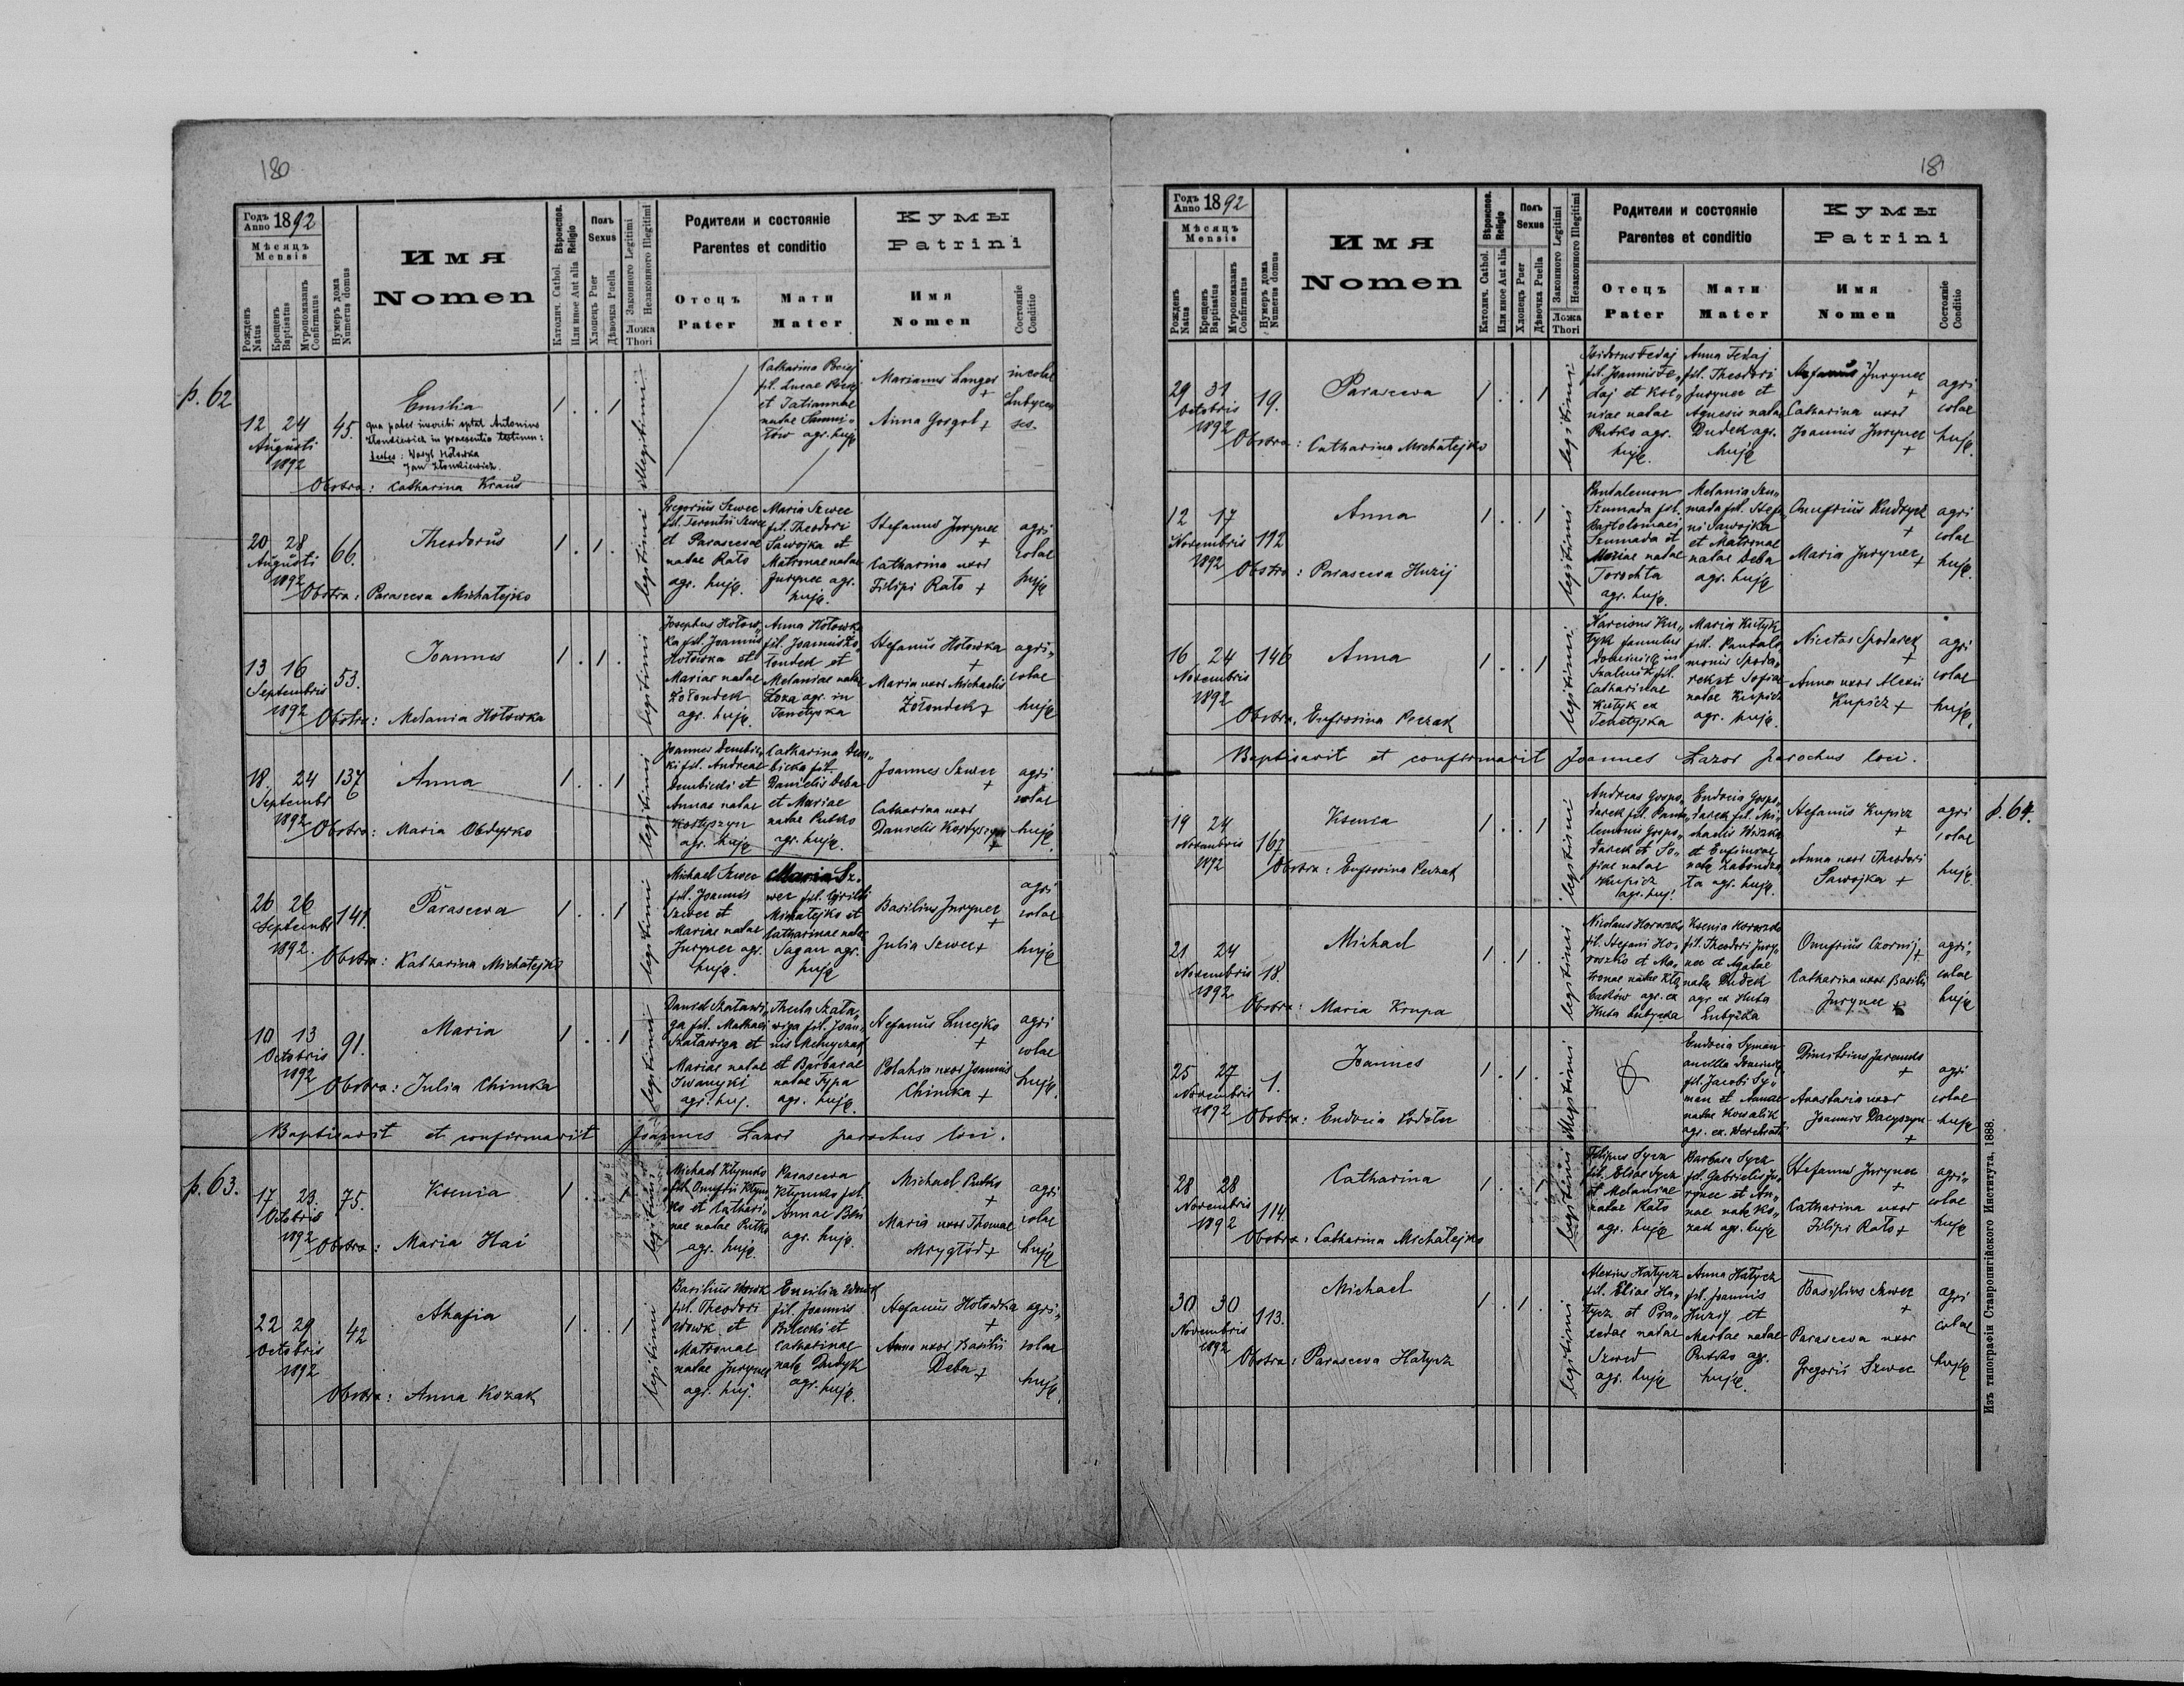 180
Годъ Anno 1892
Мѣсяцъ Mensis
Рожденъ Natus
Крещенъ Baptisatus
Муропомазанъ Confirmatus
Нумеръ дома Numerus domus
Имя
Nomen
Вѣроиспов. Religio
Католич. Cathol.
Или иное Aut alia
Полъ Sexus
Хлопецъ Puer
Дѣвочка Puella
Законного Legitimi
Незаконного Illegitimi
Ложа Thori
Родители и состояніе
Parentes et conditio
Отецъ Pater
Мати Mater
Кумы
Patrini
Имя Nomen
Состояніе Conditio
p. 62
12 24 Augusti 1892
45.
Emilia
qua pater inscribi Antonius
in praesentia testium:
Jan
Obstra: Catharina Kraus
1 . . 1
illegitimi
Catharina
fil. Lucae
et Tatiannae
natae
agr. huję
Marianus Langer +
Anna Gorgol +
incolae
20 28 Augusti 1892
66.
Theodorus
Obstra: Parasceva Michałejko
1 . 1 .
legitimi
Gregorius Szwec
fil. Terentii Szwec
et Parascevae
natae Rało
agr. huję.
Maria Szwec
fil. Theodori
Sawojka et
Matronae natae
Jurynec agr.
huję.
Stefanus Jurynec +
Catharina uxor
Filipi Rało +
agri
colae
huję
13 16 Septembris 1892
53.
Joannes
Obstra: Melania Hołowka
1 . 1 .
legitimi
Josephus Hołow„
ka fil. Joannis
Hołowka et
Mariae natae
Żołondek
agr. huję.
Anna Hołowka
fil. Joannis Żo„
łondek et
Melaniae natae
Łoza agr. in
Tenetyska
Stefanus Hołowka +
Maria uxor Michaelis
Żołondek +
agri„
colae
huję
18. 24 Septembr 1892
137
6
Anna
Obstra: Maria Obdyrko
1 . . 1
legitimi
Joannes Dembic„
ki fil. Andreae
Dembicki et
Annae natae
Kostyszyn
agr. huję
Catharina Dem„
bicka fil.
Danielis Deba
et Mariae
natae Putko
agr. huję.
Joannes Szwec +
Catharina uxor
Danielis Kostyszyn +
agri
colae
huję.
26 26 Septembr 1892.
141.
Parasceva
Obstra: Katharina Michałejko
1 . . 1
legitimi
Michael Szwec
fil. Joannis
Szwec et
Mariae natae
Jurynec agr.
huję.
Maria Sz„
wec fil. Cyrilli
Michałejko et
Catharinae natae
Sagan agr.
huję
Basilius Jurynec +
Julia Szwec +
agri
colae
huję
10 13 Octobris 1892
91.
Maria
Obstra: Julia Chimka
1 . . 1
legitimi
Daniel Szaławi„
ga fil. Mathaei
Szaławiga et
Mariae natae
Iwanycki
agr. huj.
Thecla Szała„
wiga fil. Joan„
nis Melnyczak
et Barbarae
natae Fypa
agr. huję.
Stefanus Lucejko +
Pelahia uxor Joannis
Chimka +
agri
colae
huję.
Baptisavit et confirmavit Joannes Lazor parochus loci.
p. 63.
17 23 Octobris 1892
75.
Ksenia
Obstra: Maria Hai
1 . . 1
legitimi
Michael Klymko
fil. Onufrii Klym„
ko et Cathari„
nae natae Putko
agr. huję.
Parasceva
Klymko fil.
Annae Ben
agr. huję.
Michael Putko +
Maria uxor Thomae
Mrygłod +
agri
colae
huję
22 29 Octobris 1892
42
Ahafia
Obstra: Anna Kozak
1 . . 1
legitimi
Basilius Wowk
fil. Theodori
Wowk et
Matronae
natae Jurynec
agr. huj.
Emilia Wowk
fil. Joannis
Bilecki et
Catharinae
natę Dudyk
agr. huję.
Stefanus Hołowka +
Anna uxor Basilii
Deba +
agri„
colae
huję.
181
Годъ Anno 1892
Мѣсяцъ Mensis
Рожденъ Natus
Крещенъ Baptisatus
Муропомазанъ Confirmatus
Нумеръ дома Numerus domus
Имя
Nomen
Вѣроиспов. Religio
Католич. Cathol.
Или иное Aut alia
Полъ Sexus
Хлопецъ Puer
Дѣвочка Puella
Законного Legitimi
Незаконного Illegitimi
Ложа Thori
Родители и состояніе
Parentes et conditio
Отецъ Pater
Мати Mater
Кумы
Patrini
Имя Nomen
Состояніе Conditio
29 31 Octobris 1892
19.
Parasceva
Obstra: Catharina Michałejko
1 . . 1
legitimi
Isidorus Fedaj
fil. Joannis Fe„
daj et Kse„
niae natae
Putko agr.
huję.
Anna Fedaj
fil. Theodori
Jurynec et
Agnesis natae
Dudek agr.
huję
Stefanus Jurynec +
Catharina uxor
Joannis Jurynec +
agri
colae
huję.
12 17 Novembris 1892
112
Anna
Obstra: Parasceva Huzij
1 . . 1
legitimi
Pantalemon
Szumada fil.
Bartolomaei
Szumada et
Mariae natae
Torochta
agr. huję.
Melania Szu„
mada fil. Stefa„
ni Sawojka
et Matronae
natae Deba
agr. huję
Onufrius Kudryk +
Maria Jurynec +
agri
colae
huję.
16 24 Novembris 1892
146
Anna
Obstra. Eufrosina Puzak
1 . . 1
legitimi
Narcisus Ku„
tyk famulus
dominic in
fil.
Catharinae
Kutyk ex
Tenetyska
Maria Kutyk
fil. Pantale„
monis Spoda„
rek et Sofiae
natae Kupicz
agr. huję.
Nicetas Spodarek +
Anna uxor Alexii
Kupicz +
agri
colae
huję.
Baptisavit et confirmavit Joannes Lazor parochus loci.
p. 64.
19 24 Novembris 1892
167
Ksenia
Obstra: Eufrosina Puzak
1 . . 1
legitimi
Andreas Gospo„
darek fil. Panta„
lemonis Gospo„
darek et So„
fiae natae
Kupicz
agr. huj.
Eudocia Gospo„
darek fil. Mi„
chaelis
et Eufimiae
natę
agr. huję.
Stefanus Kupicz +
Anna uxor Theodori
Sawojka +
agri
colae
huję.
21 24 Novembris 1892
18.
Michael
Obstra: Maria Krupa
1 . 1 .
legitimi
Nicolaus Horoszko
fil. Stefani Ho„
roszko et Ma„
tronae natae
agr. ex
Huta Lubycka
Ksenia Horoszko
fil. Theodori Jury„
nec et Agatae
natę Dudek
agr. ex Huta
Lubycka
Onufrius Czornij +
Catharina uxor Basilii
Jurynec +
agri„
colae
huję
25 27 Novembris 1892
1.
Joannes
Obstra: Eudocia
1 . 1 .
illegitimi
Eudocia Syman
ancilla
fil. Jacobi Sy„
man et Annae
natae Kowalik
agr. ex
Dimitrius +
Anastasia uxor
Joannis Dacyszyn +
agri
colae
huję
28 28 Novembris 1892
114.
Catharina
Obstra: Catharina Michałejko
1 . . 1
legitimi
Filipus Sycz
fil. Eliae Sycz
et Melaniae
natae Rało
agr. huję
Barbara Sycz
fil. Gabrielis Ju„
rynec et An„
nae natę Ko„
zak agr. huję
Stefanus Jurynec +
Catharina uxor
Filipi Rało +
agri„
colae
huję
30 30 Novembris 1892
113.
Michael
Obstra: Parasceva Hałycz
1 . 1 .
legitimi
Alexius Hałycz
fil. Eliae Ha„
łycz et Pra„
xedae natae
Szwec
agr. huję
Anna Hałycz
fil. Joannis
Huzij et
Marthae natae
Putko agr.
huję.
Basylius Szwec +
Parasceva uxor
Gregorii Szwec
agri
colae
huję
Изъ типографіи Ставропигійского Института, 1888.